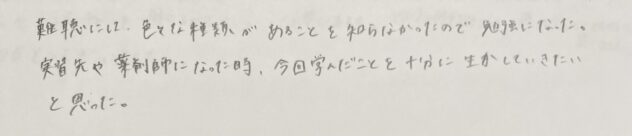 難聴には、色々な種類があることを知らなかったので勉強になった。
実習先や薬剤師になった時、今回学んだことを十分に生かしていきたい
と思った。